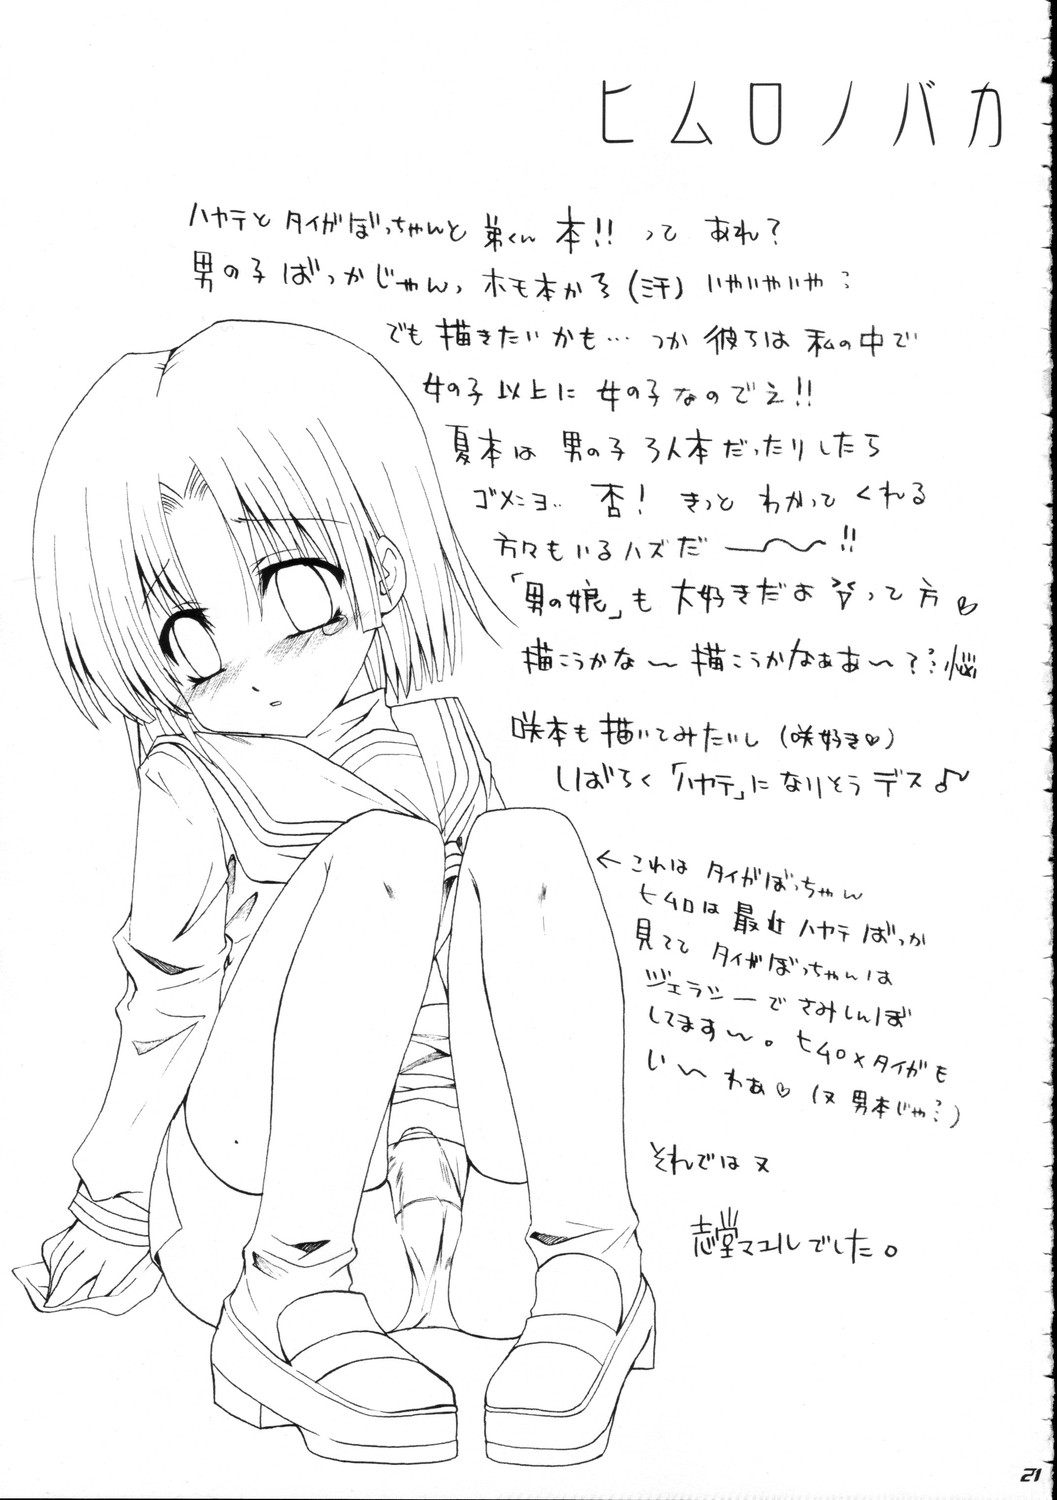 ヒムロノバカ
ハヤテと タイガぼっちゃんと 弟くん 本!! って あれ?
男の子 ばっかじゃんっ ホモ本かぁ (汗) いやいやいや
でも 描きたいかも… つか 彼らは 私の中で
女の子 以上に 女の子 なのでえ!!
夏本は 男の子 3人本だったりしたら
ゴメンヨ… 否! きっと わかって くれる
方々もいるハズだ ―〜〜!!
「男の娘」も 大好きだよ って 方♡
描こうかな〜 描こうかなぁあ〜? 悩
咲本も 描いてみたいし (咲好き♡)
しばらく 「ハヤテ」に なりそう デス♪
← これは タイガぼっちゃん
ヒムロは 最近 ハヤテ ばっか
見てて タイガぼっちゃんは
ジェラシーで さみしんぼ
してます〜。 ヒムロ×タイガも
い〜 わぁ♡ (ヌ 男本じゃ…)
それでは ヌ
志堂マユルでした。
21